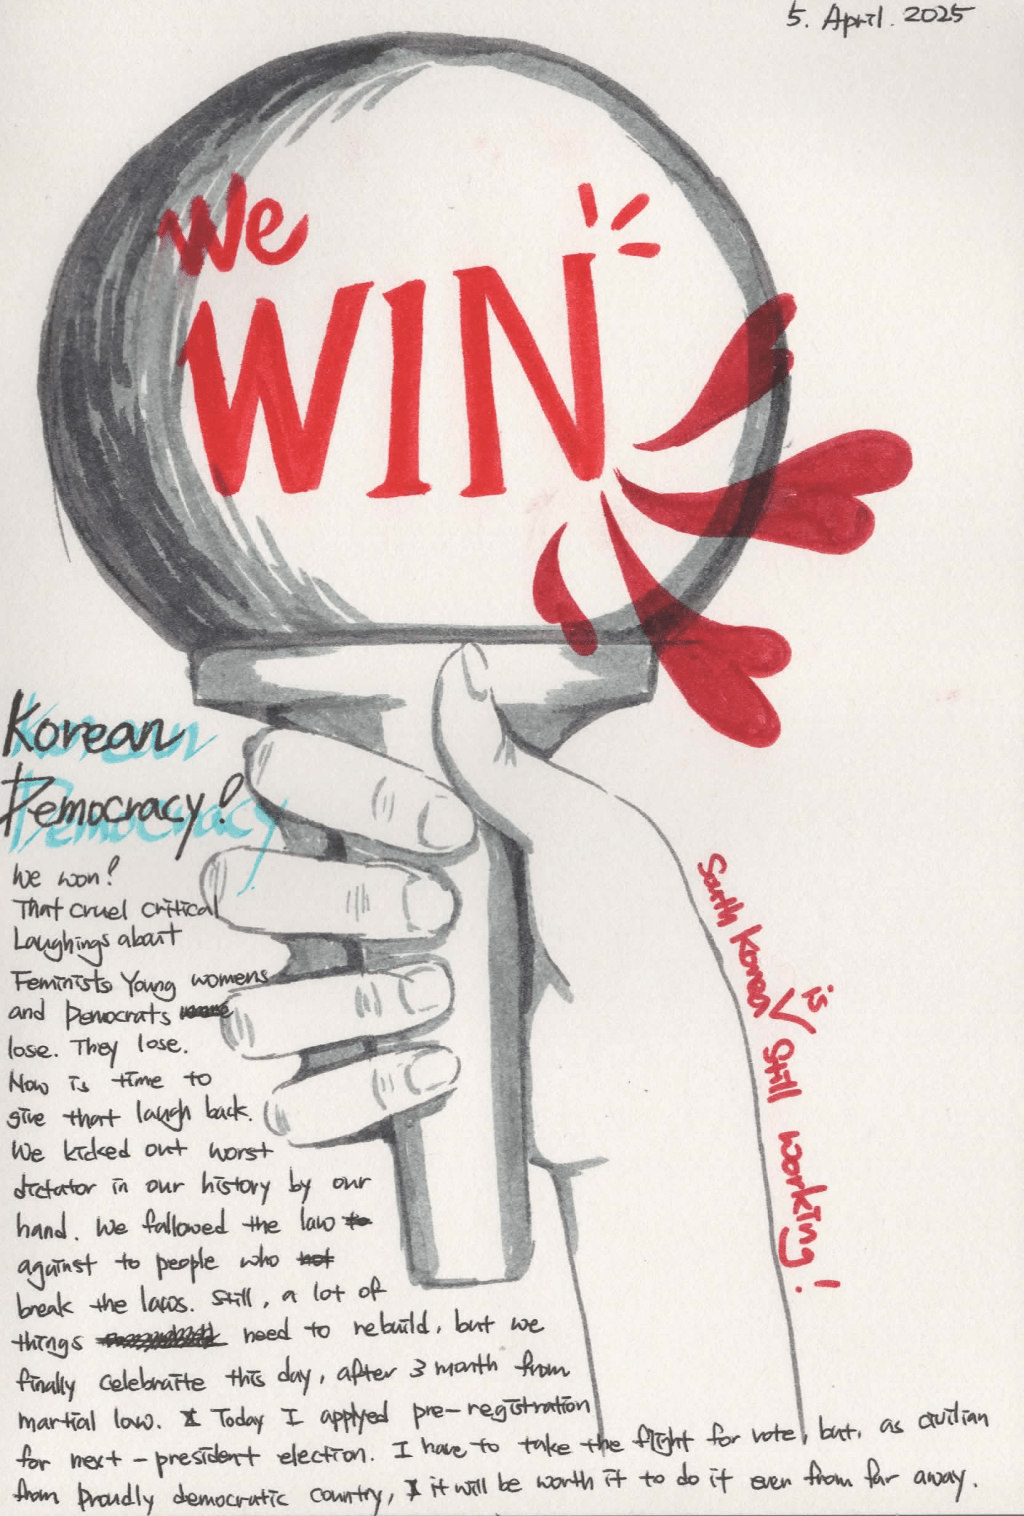 5. April. 2025
We
WIN
Korean
Democracy!
We won!
That cruel critical
Laughings about
Feminists Young womens
and Democrats
lose. They lose.
Now is time to
give that laugh back.
We kicked out worst
dictator in our history by our
hand. We followed the law
against to people who
break the laws. Still, a lot of
things need to rebuild, but we
finally celebraite this day, after 3 month from
martial law. Today I applyed pre-registration
for next-president election. I have to take the flight for vote, but, as civilian
from proudly democratic country, it will be worth it to do it even from far away.
South Korea is still working!